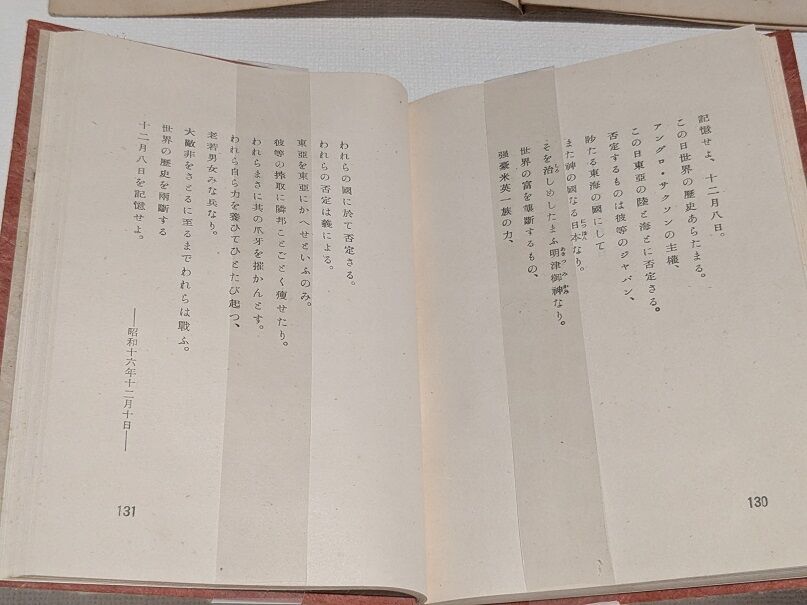 記憶せよ、十二月八日。
この日世界の歴史あらたまる。
アングロ・サクソンの主權、
この日東亞の陸と海とに否定さる。
否定するものは彼等のジャパン、
眇たる東海の國にして
また神の國なる日本なり。
にっぽん
そを治しめしたまふ明津御神なり。
しろ
あきつみかみ
世界の富を壟斷するもの、
强豪米英一族の力、
130
われらの國に於て否定さる。
われらの否定は義による。
東亞を東亞にかへせといふのみ。
彼等の搾取に隣邦ことごとく瘦せたり。
われらまさに其の爪牙を摧かんとす。
われら自ら力を養ひてひとたび起つ、
老若男女みな兵なり。
大敵非をさとるに至るまでわれらは戰ふ。
世界の歷史を兩斷する
十二月八日を記憶せよ。
——昭和十六年十二月十日——
131